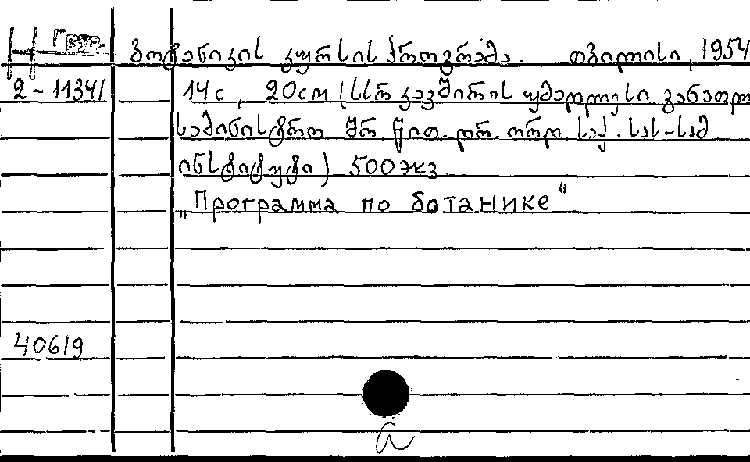 ბოტანიკის კურსის პროგრამა. თბილისი, 1954
2-11341 14 с, 20см (სსრ კავშირის უმაღლესი განათლ
სამინისტრო შრ. წით. დრ. ორდ. საქ. სას-სამ
ინსტიტუტი) 500 экз
„Программа по ботанике“
40619